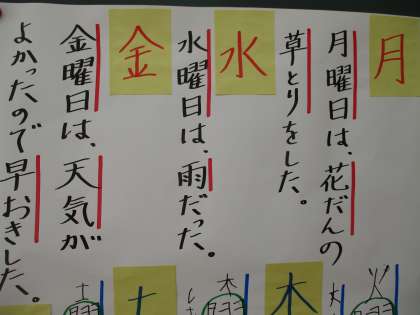 月
月曜日は、花だんの
草とりをした。
水
水曜日は、雨だった。
金
金曜日は、天気が
よかったので早おきした。
火
木
木
土
土